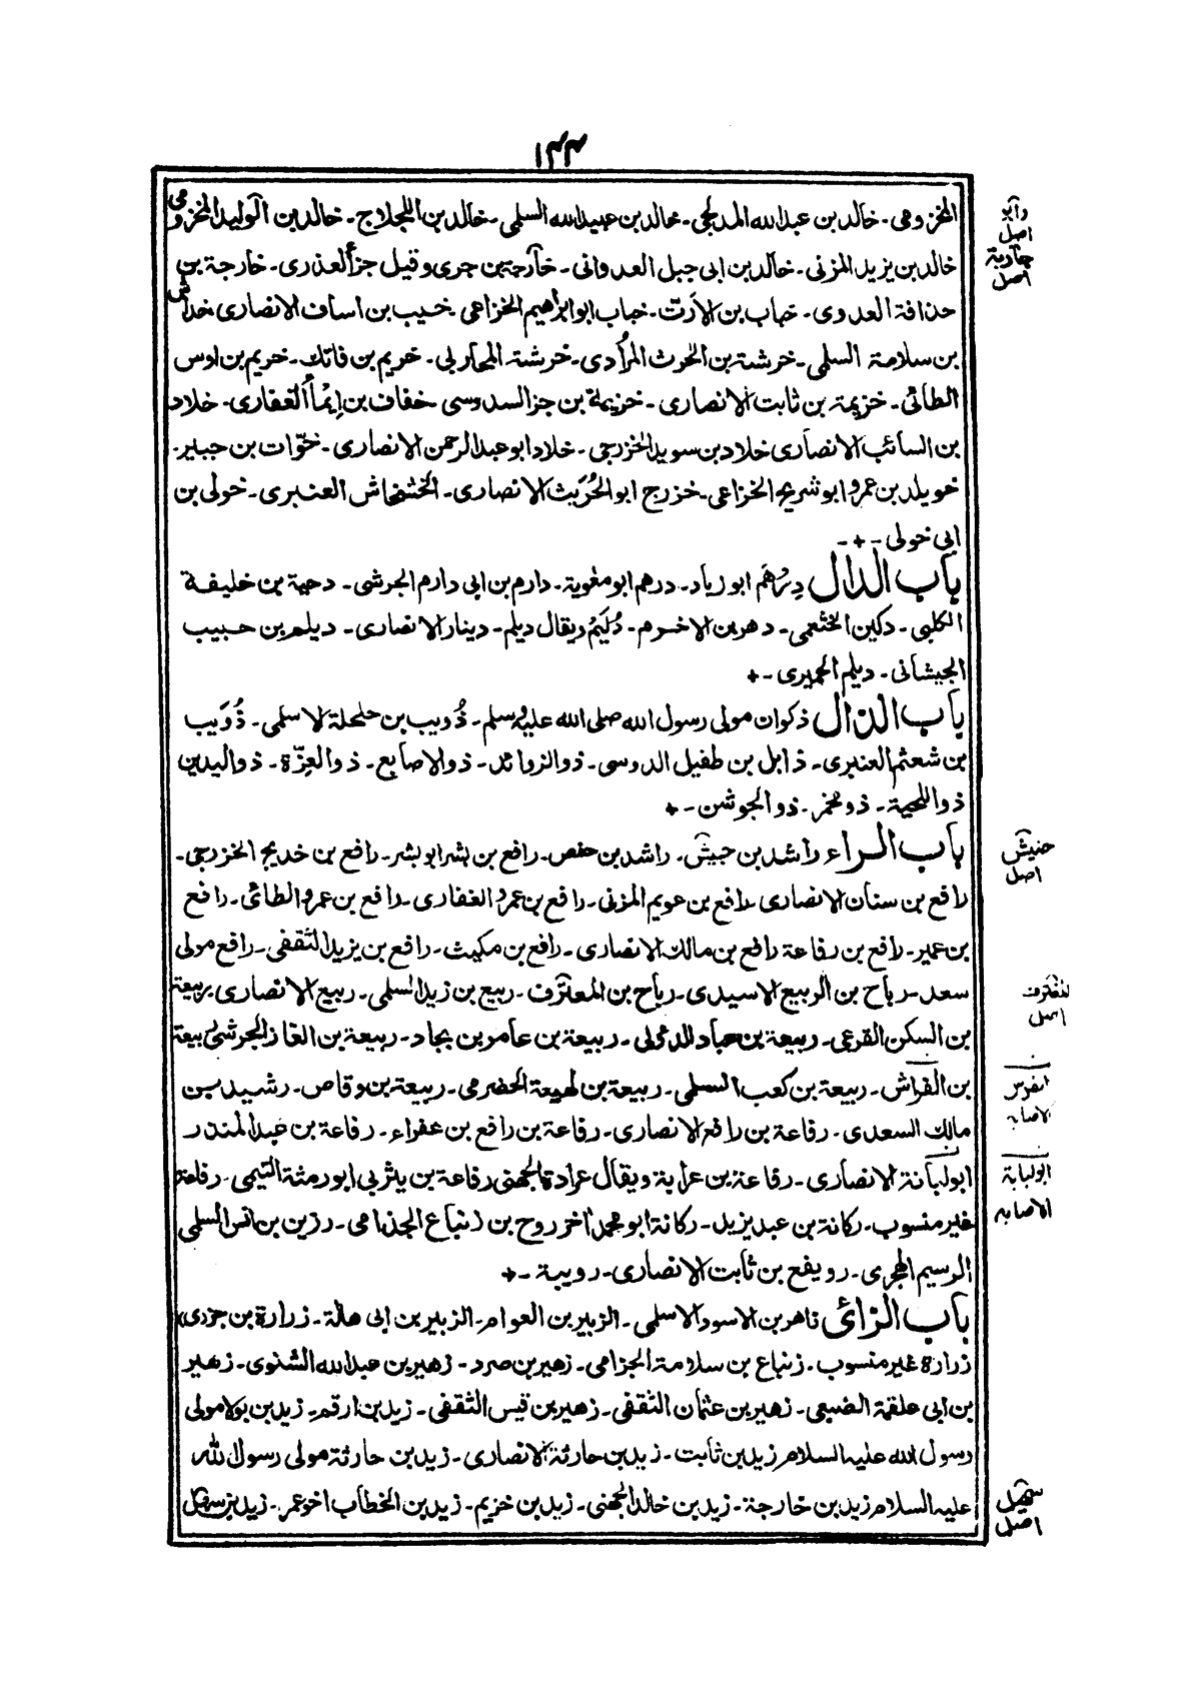 ١٣٣
المخزومى۔ خالد بن عبد الله المدلجى۔ خالد بن عبيد الله السلمى۔ خالد بن اللجلاج۔ خالد بن الوليد المخزومى
خالد بن يزيد المزنى۔ خالد بن ابى جبل العدوانى۔ خارجة بن جرى وقيل جزأ العذرى۔ خارجة بن
حذافة العدوى۔ خباب بن الارت۔ خباب ابو ابراهيم الخزاعى خبيب بن اساف الانصارى خداش
بن سلامة السلمى۔ خرشة بن الحرث المرادى۔ خرشة المحاربى۔ خريم بن فاتك۔ خريم بن اوس
الطائى۔ خزيمة بن ثابت الانصارى۔ خزيمة بن جز السدوسى خفاف بن ايمأ الغفارى۔ خلاد
بن السائب الانصارى خلاد بن سويد الخزرجى۔ خلاد ابو عبد الرحمن الانصارى۔ خوّات بن جبير۔
خويلد بن عمرو ابو شريح الخزاعى۔ خزرج ابو الحُرَيث الانصارى۔ الخشخاش العنبرى۔ خولى بن
ابى خولى۔+۔
باب الدال دِرْهَم ابو زياد۔ درهم ابو مغوية۔ دارم بن ابى دارم الجرشى۔ دحية بن خليفة
الكلبى۔ دكين الخثعمى۔ دهر بن الاخرم۔ دُلَيَم ويقال ديلم۔ دينار الانصارى۔ ديلم بن حبيب
الجيشانى۔ ديلم الحميرى۔+
باب الذال ذكوان مولى رسول الله صلى الله عليه وسلم۔ ذُويب بن حلحلة الاسلمى۔ ذُوَيب
بن شعثم العنبرى۔ ذابل بن طفيل الدوسى۔ ذو الزوائد۔ ذو الاصابع۔ ذو العِزّة۔ ذو اليدين
ذو اللحية۔ ذو مخمر۔ ذو الجوشن۔+
باب الراء راشد بن حبيش۔ راشد بن حفص۔ رافع بن بشر ابو بشر۔ رافع بن خديج الخزرجى۔
رافع بن سنان الانصارى رافع بن عويم المزنى۔ رافع بن عمرو الغفارى۔ رافع بن عمرو الطائى۔ رافع
بن عمير۔ رافع بن رفاعة رافع بن مالك الانصارى۔ رافع بن مكيث۔ رافع بن يزيد الثقفى۔ رافع مولى
سعد۔ رباح بن الربيع الاسيدى۔ رباح بن المعترف۔ ربيع بن زيد السلمى۔ ربيع الانصارى ربيعة
بن السكن القرعى۔ ربيعة بن عباد الدولى۔ ربيعة بن عامر بن بجاد۔ ربيعة بن الغاز الجرشى ربيعة
بن الفراش۔ ربيعة بن كعب السلمى۔ ربيعة بن لهيعة الحضرمى۔ ربيعة بن وقاص۔ رشيد بن
مالك السعدى۔ رفاعة بن رافع الانصارى۔ رفاعة بن رافع بن عفراء۔ رفاعة بن عبد المنذر
ابو لبانة الانصارى۔ رفاعة بن عرابة ويقال عرادة الجهنى رفاعة بن يثربى ابو رمثة التيمى۔ رفاعة
غير منسوب۔ ركانة بن عبد يزيد۔ ركانة ابو محمد اخر روح بن زنباع الجذامى۔ رزين بن انس السلمى
الرسيم الهجرى۔ رويفع بن ثابت الانصارى۔ رويبة۔+
باب الزائ زاهر بن الاسود الاسلمى۔ الزبير بن العوام۔ الزبير بن ابى هالة۔ زرارة بن جزى
زرارة غير منسوب۔ زنباع بن سلامة الجزامى۔ زهير بن صرد۔ زهير بن عبد الله الشنوى۔ زهير
بن ابى علقمة الضبعى۔ زهير بن عثمان الثقفى۔ زهير بن قيس الثقفى۔ زيد بن ارقم۔ زيد بن بولا مولى
رسول الله عليه السلام زيد بن ثابت۔ زيد بن حارثة الانصارى۔ زيد بن حارثة مولى رسول الله
عليه السلام زيد بن خارجة۔ زيد بن خالد الجهنى۔ زيد بن خزيم۔ زيد بن الخطاب اخو عمر۔ زيد بن
اصل
جارية
اصل
حنيش
اصل
اصل
الاصابه
ابو لبابة
الاصابه
اصل